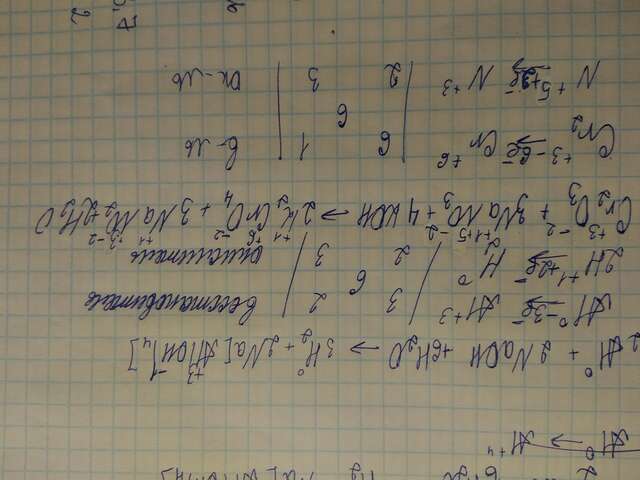 2 6H₂O H₂ Na[Al(OH)₄]
Al⁰ → Al⁺⁴
2Al⁰ + 2NaOH + 6H₂O → 3H₂⁰ + 2Na[Al⁺³(OH)₄⁻¹]
Al⁰ -3e̅ → Al⁺³ | 3 | 2 восстановитель
6
2H⁺¹ +2e̅ → H₂⁰ | 2 | 3 окислитель
Cr₂⁺³O₃⁻² + 3Na⁺¹N⁺⁵O₃⁻² + 4KOH → 2K₂⁺¹Cr⁺⁶O₄⁻² + 3Na⁺¹N⁺³O₂⁻² + 2H₂O
Cr₂⁺³ -6e̅ → Cr⁺⁶ | 6 | 1 в-ль
6
N⁺⁵ +2e̅ → N⁺³ | 2 | 3 ок-ль
2